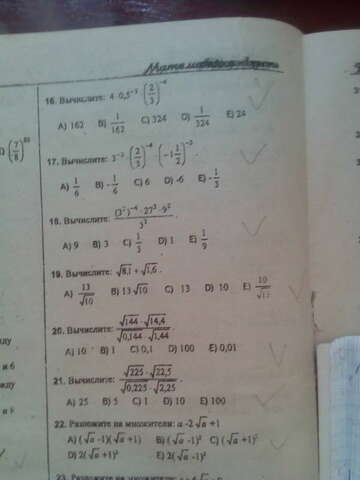 16. Вычислите: 4·0,5⁻³·(2/3)⁻⁴
A) 162 B) 1/162 C) 324 D) 1/324 E) 24
17. Вычислите: 3⁻³·(2/3)⁻⁴·(-1 1/2)⁻²
A) 1/6 B) -1/6 C) 6 D) -6 E) -1/3
18. Вычислите:
A) 9 B) 3 C) 1/3 D) 1 E) 1/9
19. Вычислите: √8,1 + √1,6.
A) 13/√10 B) 13√10 C) 13 D) 10 E) 10/√13
20. Вычислите: √144·√14,4/√0,144·√1,44
A) 10 B) 1 C) 0,1 D) 100 E) 0,01
21. Вычислите: √225·√22,5/√0,225·√2,25
A) 25 B) 5 C) 1 D) 10 E) 100
22. Разложите на множители: a-2√a+1
A) (√a-1)(√a+1) B) (√a-1)² C) (√a+1)²
D) 2(√a+1)² E) 2(√a-1)²
23. Разложите на множители: